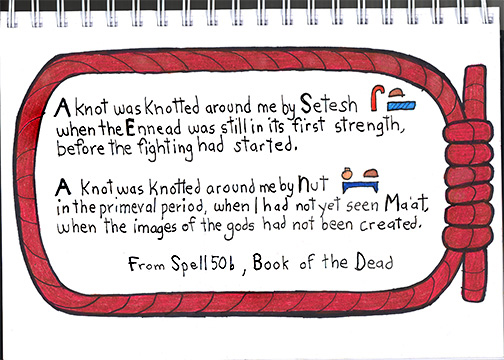 A Knot was Knotted around me by Setesh
when the Ennead was still in its first strength,
before the fighting had started.
A Knot was Knotted around me by Nut
in the primeval period, when I had not yet seen Ma'at,
when the images of the gods had not been created.
From Spell 50b, Book of the Dead